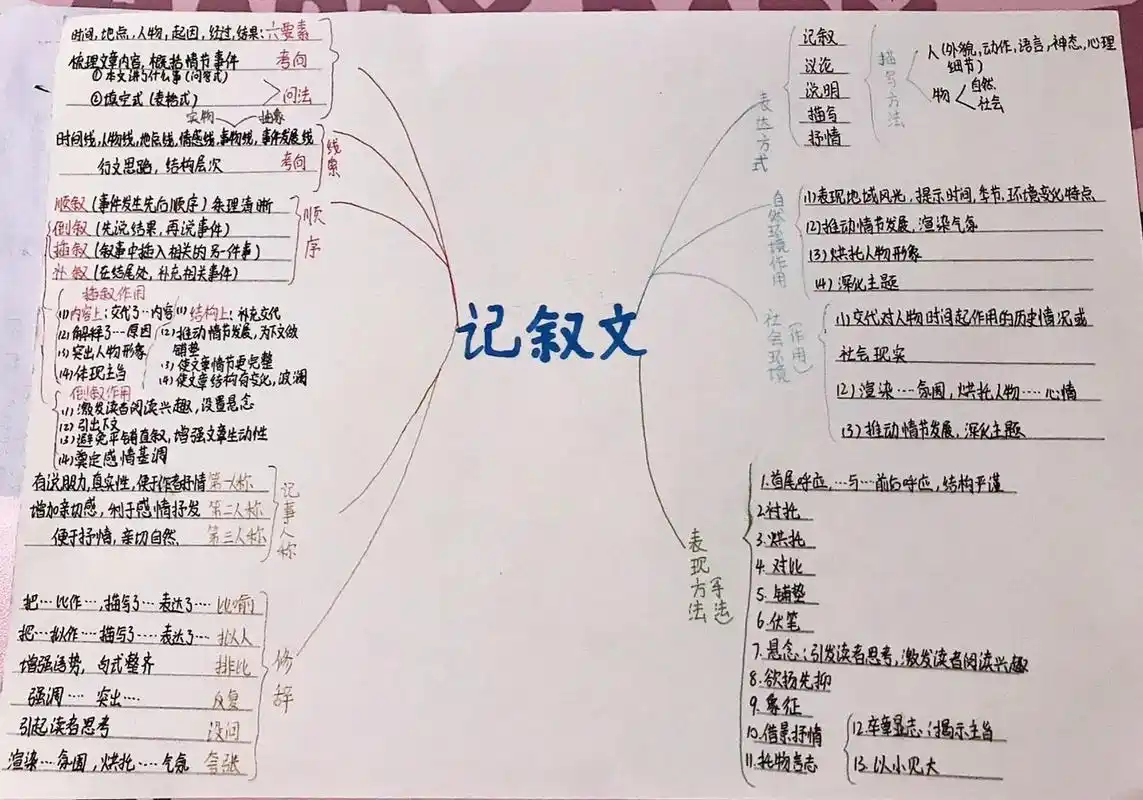 记叙文
时间,地点,人物,起因,经过,结果:六要素
梳理文章内容,概括情节事件 考向
①本文讲了什么事(问答式)
②填空式(表格式)
问法
实物 抽象
时间线,人物线,地点线,情感线,事物线,事件发展线
行文思路,结构层次 考向
线索
顺叙(事件发生先后顺序)条理清晰
倒叙(先说结果,再说事件)
插叙(叙事中插入相关的另一件事)
补叙(在结尾处,补充相关事件)
顺序
插叙作用
(1)内容上:交代了…内容
(2)解释了…原因
(3)突出人物形象
(4)体现主旨
(1)结构上:补充交代
(2)推动情节发展,为下文做
铺垫
(3)使文章情节更完整
(4)使文章结构有变化,波澜
倒叙作用
(1)激发读者阅读兴趣,设置悬念
(2)引出下文
(3)避免平铺直叙,增强文章生动性
(4)奠定感情基调
有说服力,真实性,便于作者抒情 第一人称
增加亲切感,利于感情抒发 第二人称
便于抒情,亲切自然 第三人称
记事人称
把…比作…,描写了…表达了… 比喻
把…拟作…描写了…表达了… 拟人
增强语势,句式整齐 排比
强调…突出… 反复
引起读者思考 设问
渲染…氛围,烘托…气氛 夸张
修辞
表达方式
记叙
议论
说明
描写
抒情
描写方法
人(外貌,动作,语言,神态,心理
细节)
物
自然
社会
自然环境作用
(1)表现地域风光,提示时间,季节,环境变化特点
(2)推动情节发展,渲染气氛
(3)烘托人物形象
(4)深化主题
社会环境(作用)
(1)交代对人物时间起作用的历史情况或
社会现实
(2)渲染…氛围,烘托人物…心情
(3)推动情节发展,深化主题
表现方法(手法)
1.首尾呼应,…与…前后呼应,结构严谨
2.衬托
3.烘托
4.对比
5.铺垫
6.伏笔
7.悬念:引发读者思考,激发读者阅读兴趣
8.欲扬先抑
9.象征
10.借景抒情
11.托物言志
12.卒章显志:揭示主旨
13.以小见大